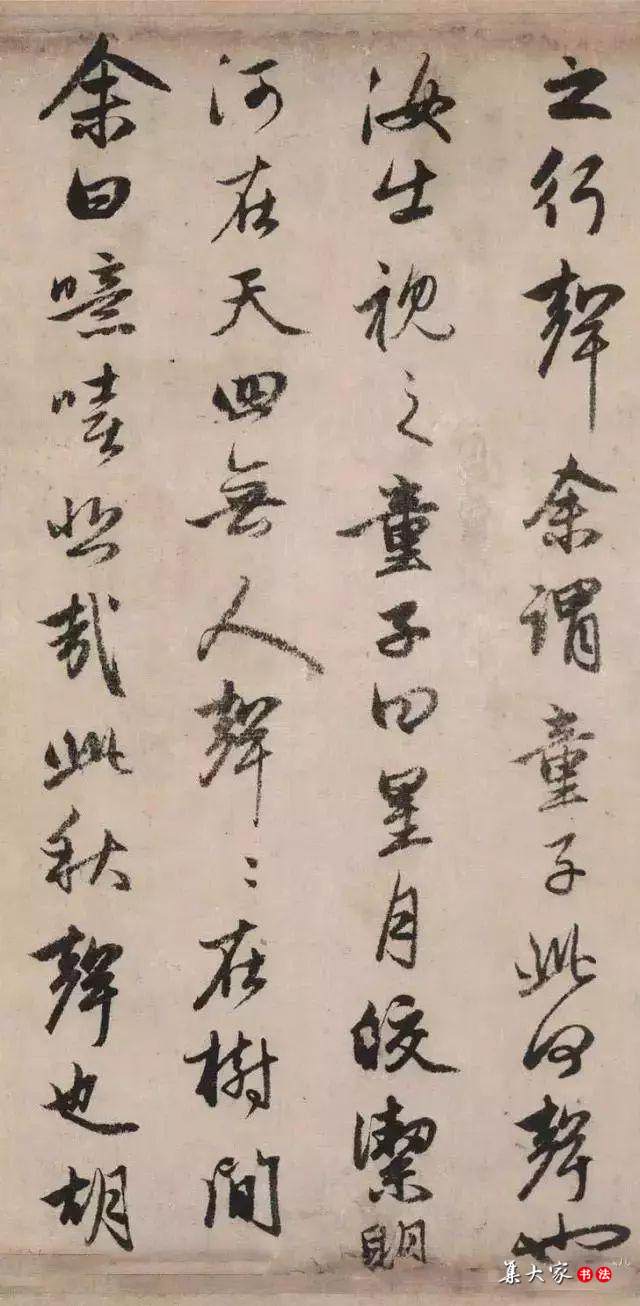 之行聲余謂童子此何聲也
汝出視之童子曰星月皎潔明
河在天四無人聲〻在樹間
余曰噫嘻悲哉此秋聲也胡
集大家书法